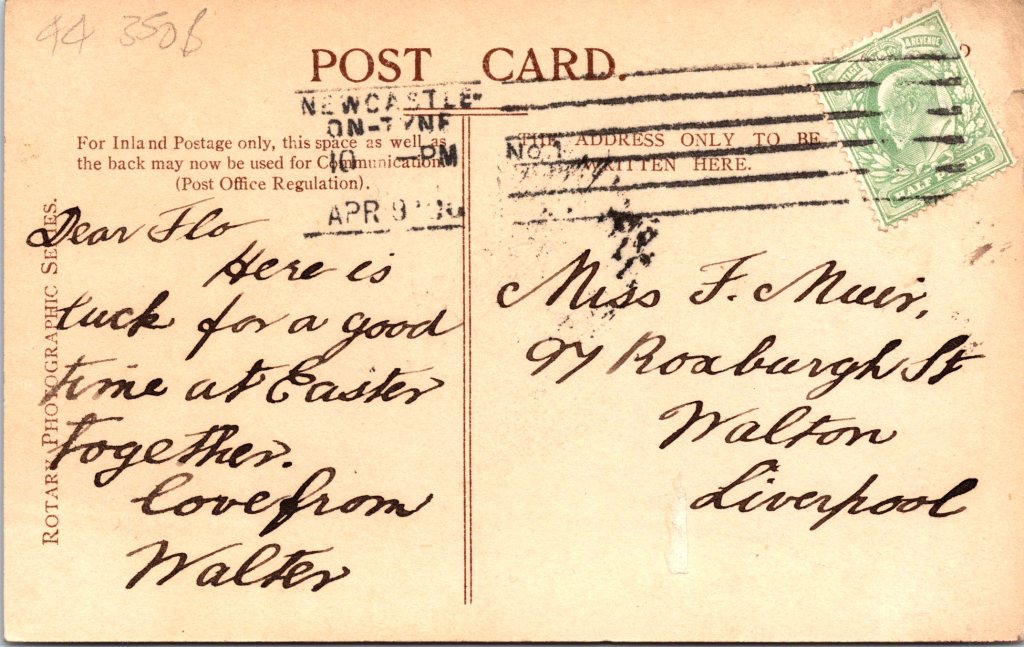 44 350
POST CARD.
NEWCASTLE-
ON-TYNE
10 PM
APR 9
No. 1
For Inland Postage only, this space as well as
the back may now be used for Communication
(Post Office Regulation).
THE ADDRESS ONLY TO BE
WRITTEN HERE.
& REVENUE
HALF PENNY
ROTARY PHOTOGRAPHIC SERIES.
Dear Flo
Here is
luck for a good
time at Easter
together.
love from
Walter
Miss F. Muir,
97 Roxburgh St
Walton
Liverpool